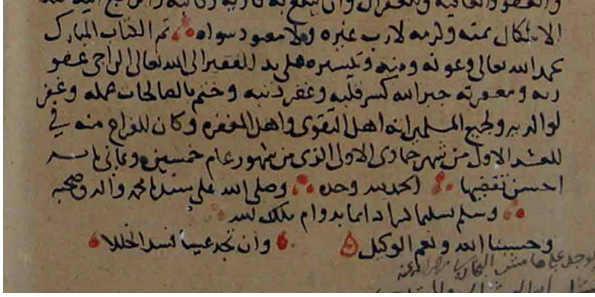 والعفو والعافية والغفران وان ينفع به
الاتكال بمنه وكرمه لا رب غيره ولا معبود سواه تم الكتاب المبارك
بحمد الله تعالى وعونه ومنه وتيسيره على يد الفقير الى الله تعالى الراجي عفو
ربه ومغفرته جبر الله كسر قلبه وغفر ذنبه وختم بالصالحات عمله وغفر
لوالديه ولجميع المسلمين انه اهل التقوى واهل المغفره وكان الفراغ منه في
العشر الاول من شهر جمادى الاولى الذي من شهور عام خمسين وثماني مايه
احسن تقضيها الحمد لله وحده وصلى الله على سيدنا محمد واله وصحبه
وسلم تسليما كثيرا دايما بدوام ملك الله
وحسبنا الله ونعم الوكيل وان تجد عيبا فسد الخللا